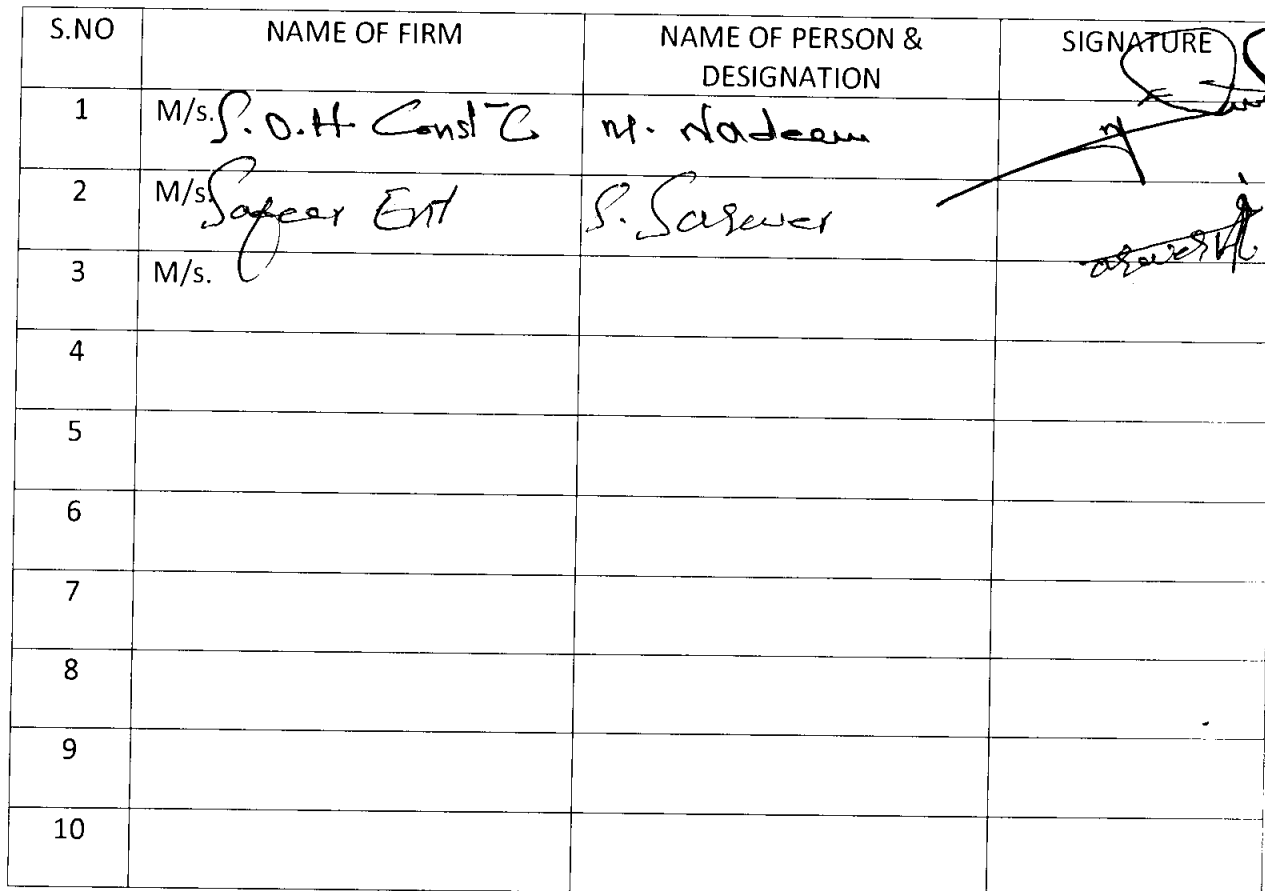 S.NO NAME OF FIRM NAME OF PERSON & SIGNATURE
DESIGNATION
1 M/s. S.O.H Const C M. Nadeem
2 M/s. Safeer Ent S. Sarwer
3 M/s.
4
5
6
7
8
9
10